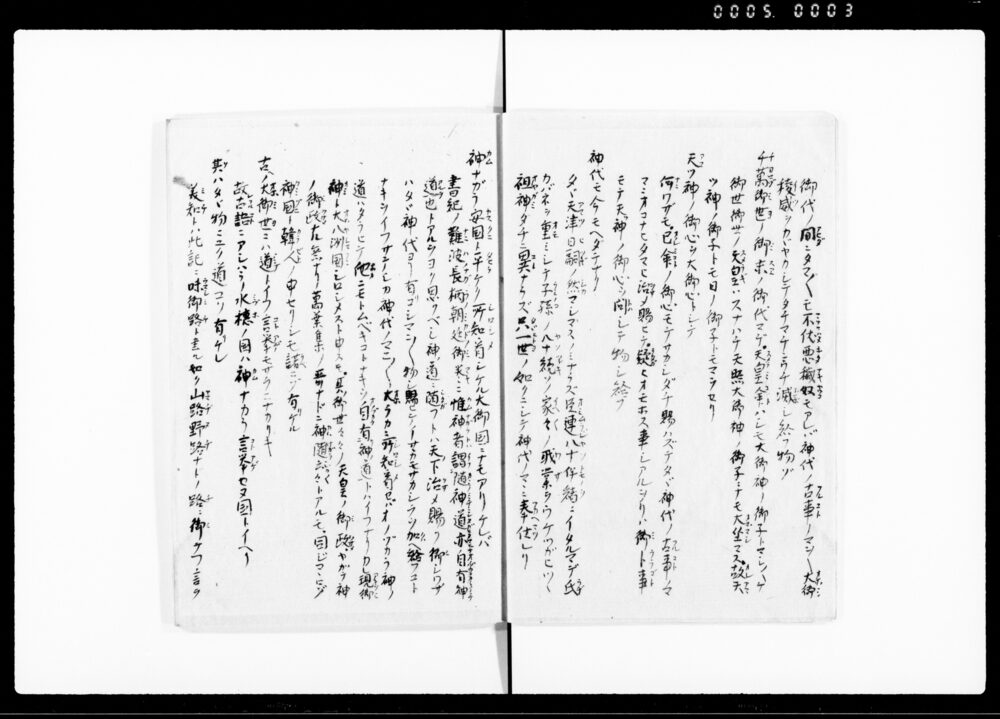 0005. 0003
御代ノ間ニタマ〱モ不伏悪穢奴モアレバ神代ノ古事ノマニ〱大御
稜威ヲカヾヤカシテタチマチニウチ滅シ給フ物ゾ
千萬御世ノ御末ノ御代マデ天皇命ハシモ大御神ノ御子トマシ〱テ
御世御世ノ天皇ハスナハチ天照大御神ノ御子ニナモ大坐マス故天
ツ神ノ御子トモ日ノ御子トモマヲセリ
天ツ神ノ御心ヲ大御心トシテ
何ワザモ己命ノ御心モテサカシダチ賜ハズテタヾ神代ノ古事ノマ
マニオコナヒタマヒ治メ賜ヒテ疑ヒオモホス事シアルヲリハ御卜事
モテ天神ノ御心ヲ問シテ物シ給フ
神代モ今モヘダテナク
タヾ天津日嗣ノ然マシマスノミナラズ臣連八十伴緒ニイタルマデ氏
カバネヲ重ミシテ子孫ノ八十続ソノ家々ノ職業ヲウケツガヒツヽ
祖神タチニ異ナラズ只一世ノ如クニシテ神代ノマニ奉仕レリ
神ナガラ安国ト平ケク所知看シケル大御国ニナモアリケレバ
書紀ノ難波長柄朝廷御巻ニ惟神者謂随神道亦自有神
道也トアルヲヨク思フベシ神道ニ随フトハ天下治メ賜フ御シワザ
ハタヾ神代ヨリ有コシマニ〱物シ賜ヒテイサカモサカシラヲ加ヘ給フコト
ナキヲイフサテシカ神代ノマニ〱大ラカニ所知看セバオノヅカラ神ノ
道ハタラヒテ他ニモトムベキコトナキヲ自有神道トハイフナリカ現御
神ト大八洲国シロシメスト申スモ其御世々々ノ天皇ノ御政ヤガテ神
ノ御政ナル意ナリ萬葉集ノ哥ナドニ神随云々トアルモ同ジココロゾ
神国ト韓人ノ申セリシモ諾ニゾ有ケル
古ノ大御世ニハ道トイフ言挙モサラニナカリキ
故古語ニアシハラノ水穂ノ国ハ神ナカラ言挙セヌ国トイヘリ
其ハタヾ物ニユク道コソ有ケレ
美知トハ此記ニ味御路ト書ル如ク山路野路ナドノ路ニ御テフ言ヲ